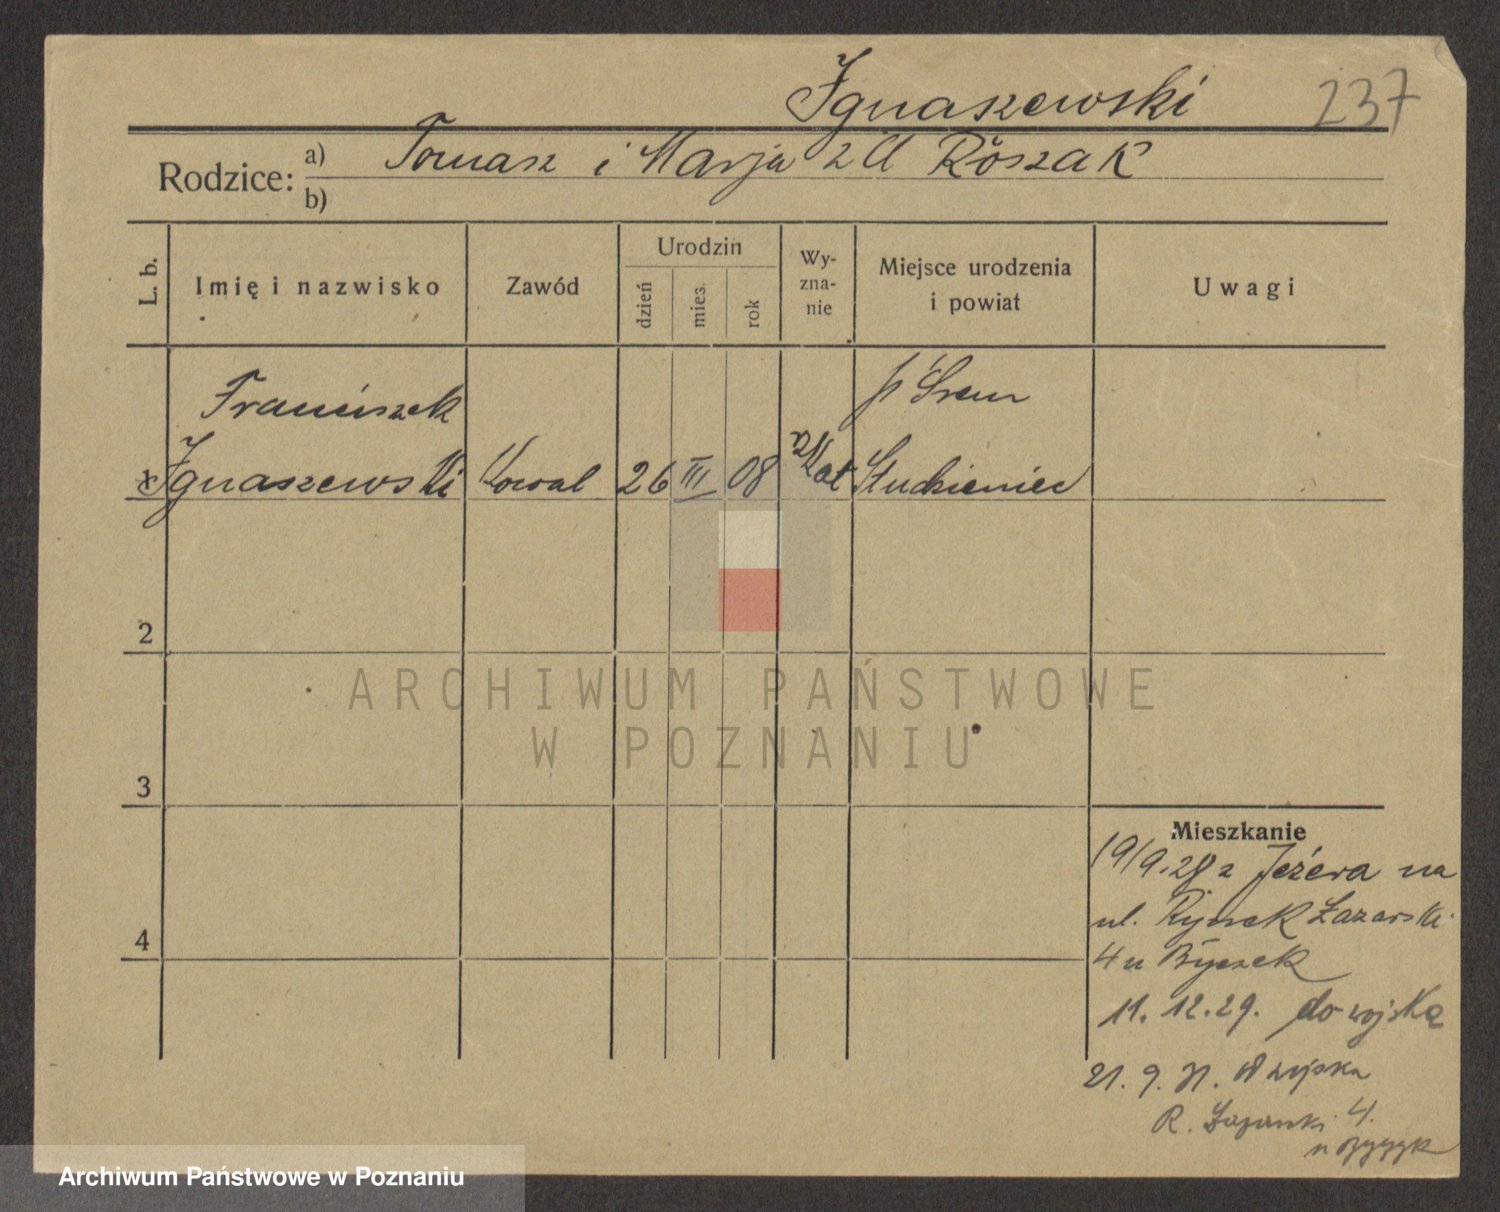 Ignaszewski 237
Rodzice: a) Tomasz i Marja z d Rószak
b)
L. b. Imię i nazwisko Zawód Urodzin dzień mies. rok Wy-zna-nie Miejsce urodzenia i powiat Uwagi
Franciszek p Śrem
1 Ignaszewski Kowal 26 III 08 rz Kat Studzieniec
2
ARCHIWUM PAŃSTWOWE
W POZNANIU
3
Mieszkanie
19/9.28 z Jeżera na
ul. Rynek Łazarski
4 u
4
11.12.29. do wojska
21. 9. 31. od wojska
R. Łazarski 4.
Archiwum Państwowe w Poznaniu